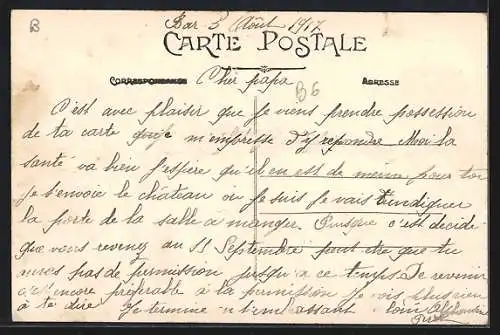 B
Bar 3 Août 1917
CARTE POSTALE
CORRESPONDANCE
ADRESSE
Cher papa
B6
C'est avec plaisir que je viens prendre possession
de ta carte que je m'empresse d'y repondre. Moi la
santé va bien J'espère qu'il en est de même pour toi
Je t'envoie le château ou je suis Je vais t'indiquer
la porte de la salle à manger. Puisque c'est décidé
que vous revenez au 11 Septembre peut etre que tu
auras pas de permission jusqu'a ce temps. Le revenir
c'est encore préférable à la permission Je vois plus rien
à te dire Je termine en t'embrassant loin